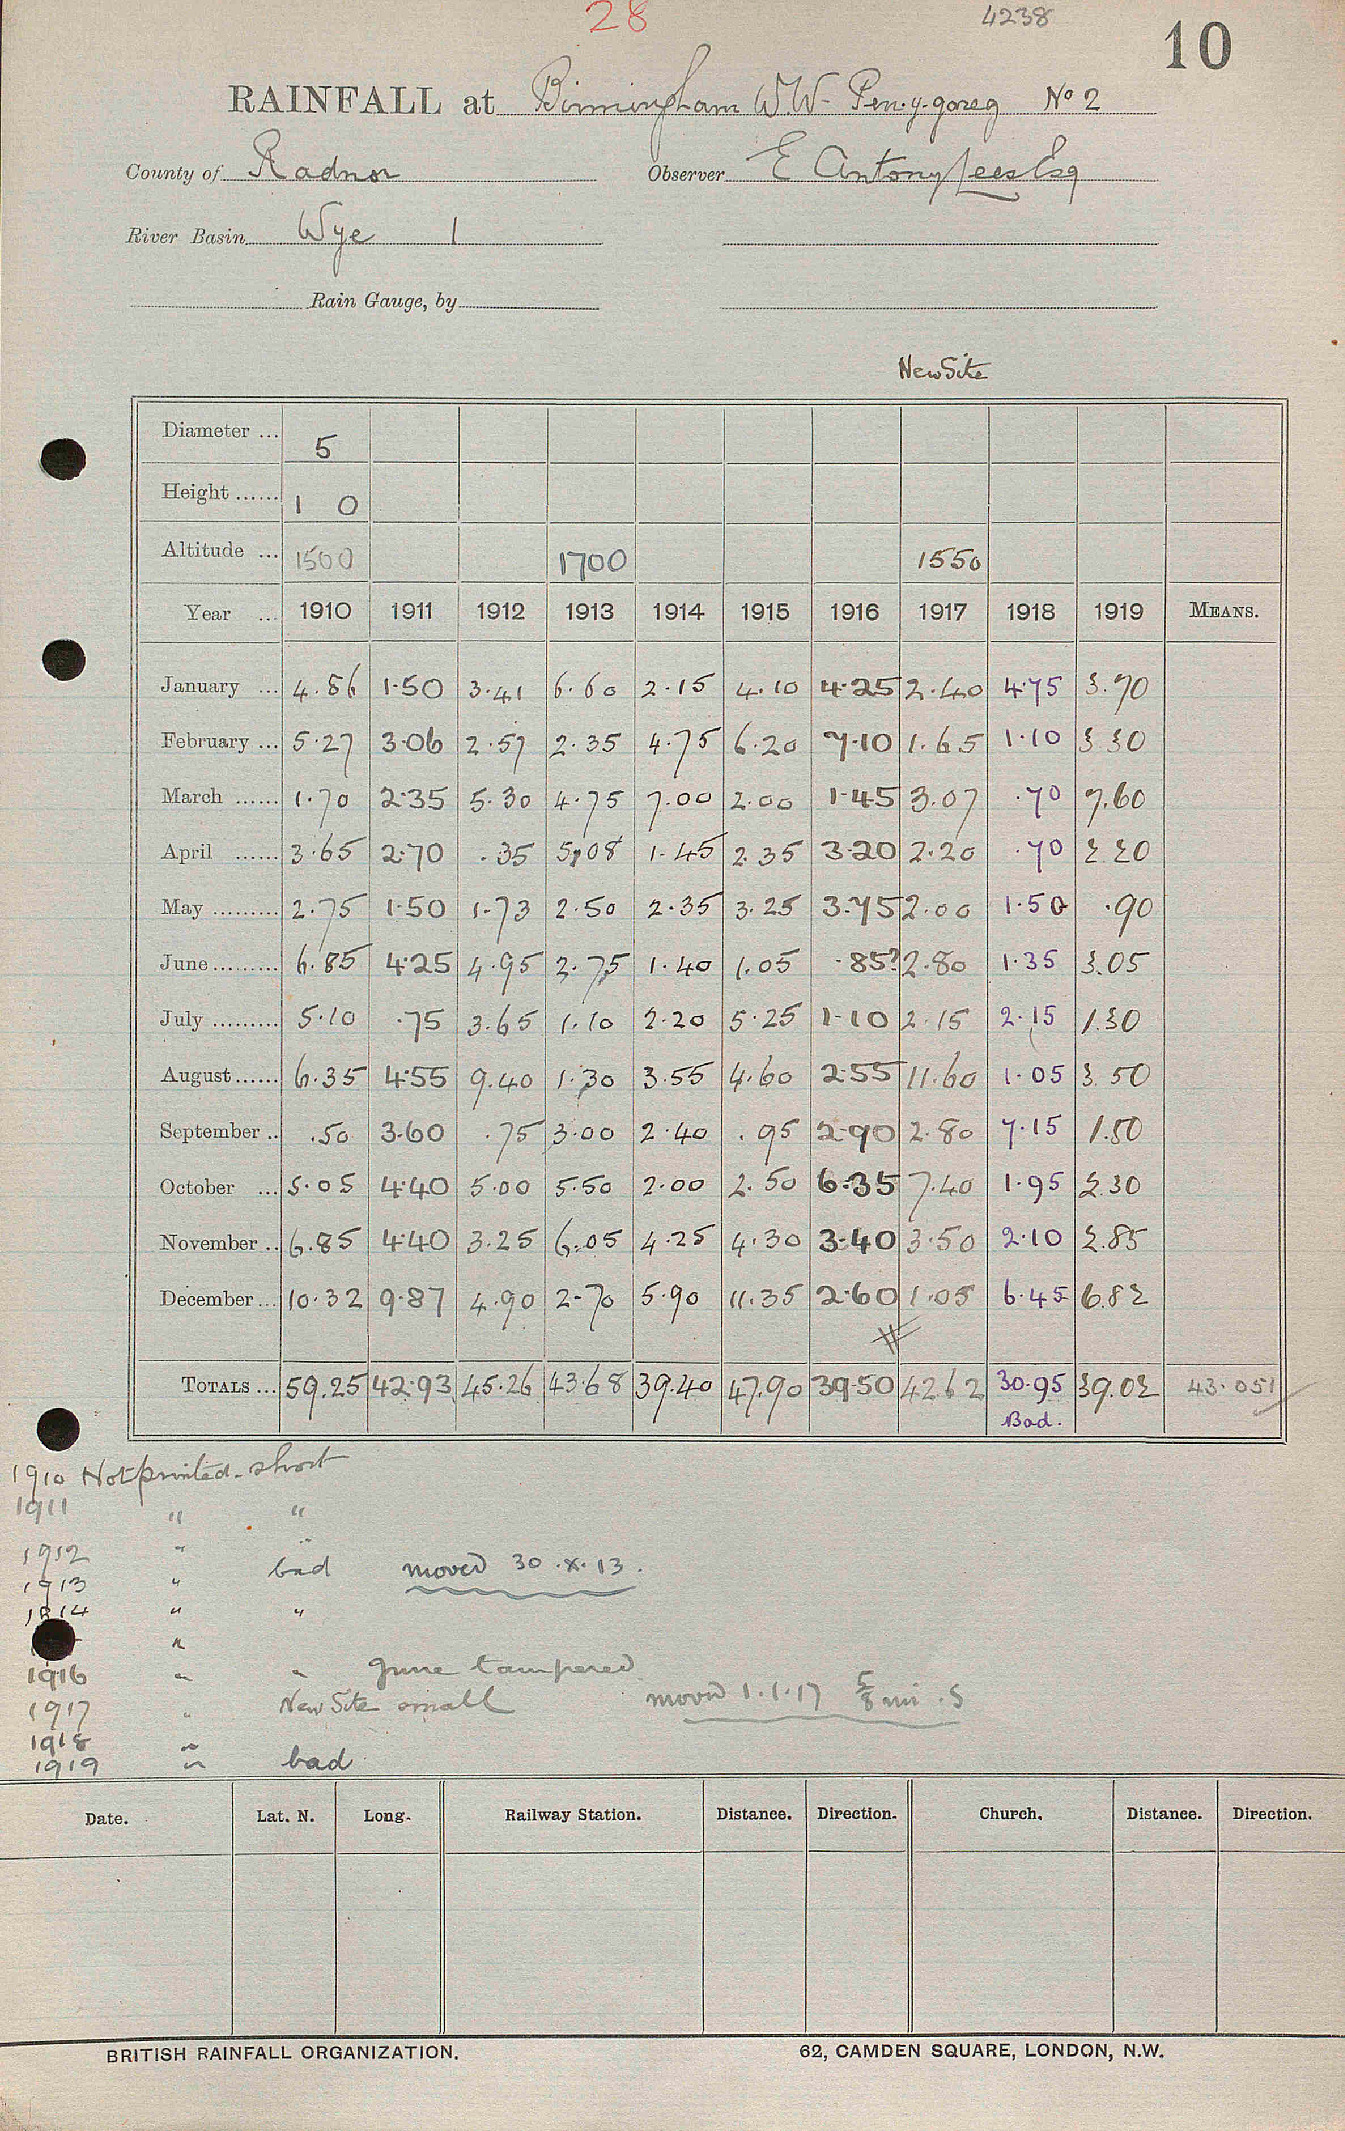 28
4238
10
RAINFALL at Birmingham W.W. Pen.y.gareg No 2
County of Radnor Observer E Antony Lees Esq
River Basin Wye 1
Rain Gauge, by
New Site
Diameter ... 5
Height ...... 1 0
Altitude ... 1500 1700 1550
Year ... 1910 1911 1912 1913 1914 1915 1916 1917 1918 1919 MEANS.
January ... 4.86 1.50 3.41 6.60 2.15 4.10 4.25 2.40 4.75 3.70
February ... 5.27 3.06 2.57 2.35 4.75 6.20 7.10 1.65 1.10 3.30
March ...... 1.70 2.35 5.30 4.75 7.00 2.00 1.45 3.07 .70 7.60
April ...... 3.65 2.70 .35 5.08 1.45 2.35 3.20 2.20 .70 2.20
May ......... 2.75 1.50 1.73 2.50 2.35 3.25 3.75 2.00 1.50 .90
June ......... 6.85 4.25 4.95 2.75 1.40 1.05 .85? 2.80 1.35 3.05
July ......... 5.10 .75 3.65 1.10 2.20 5.25 1.10 2.15 2.15 1.30
August...... 6.35 4.55 9.40 1.30 3.55 4.60 2.55 11.60 1.05 3.50
September .. .50 3.60 .75 3.00 2.40 .95 2.90 2.80 7.15 1.50
October ... 5.05 4.40 5.00 5.50 2.00 2.50 6.35 7.40 1.95 2.30
November .. 6.85 4.40 3.25 6.05 4.25 4.30 3.40 3.50 2.10 2.85
December ... 10.32 9.87 4.90 2.70 5.90 11.35 2.60 1.05 6.45 6.82
TOTALS ... 59.25 42.93 45.26 43.68 39.40 47.90 39.50 42.62 30.95 39.02 43.051
Bad.
1910 Not printed - short
1911 " "
1912 " "
1913 " bad moved 30.X.13.
1914 " "
"
1916 " " June tampered
1917 " New Site small moved 1.1.17 5/8 mi. S
1918 "
1919 " bad
Date. Lat. N. Long. Railway Station. Distance. Direction. Church. Distance. Direction.
BRITISH RAINFALL ORGANIZATION. 62, CAMDEN SQUARE, LONDON, N.W.